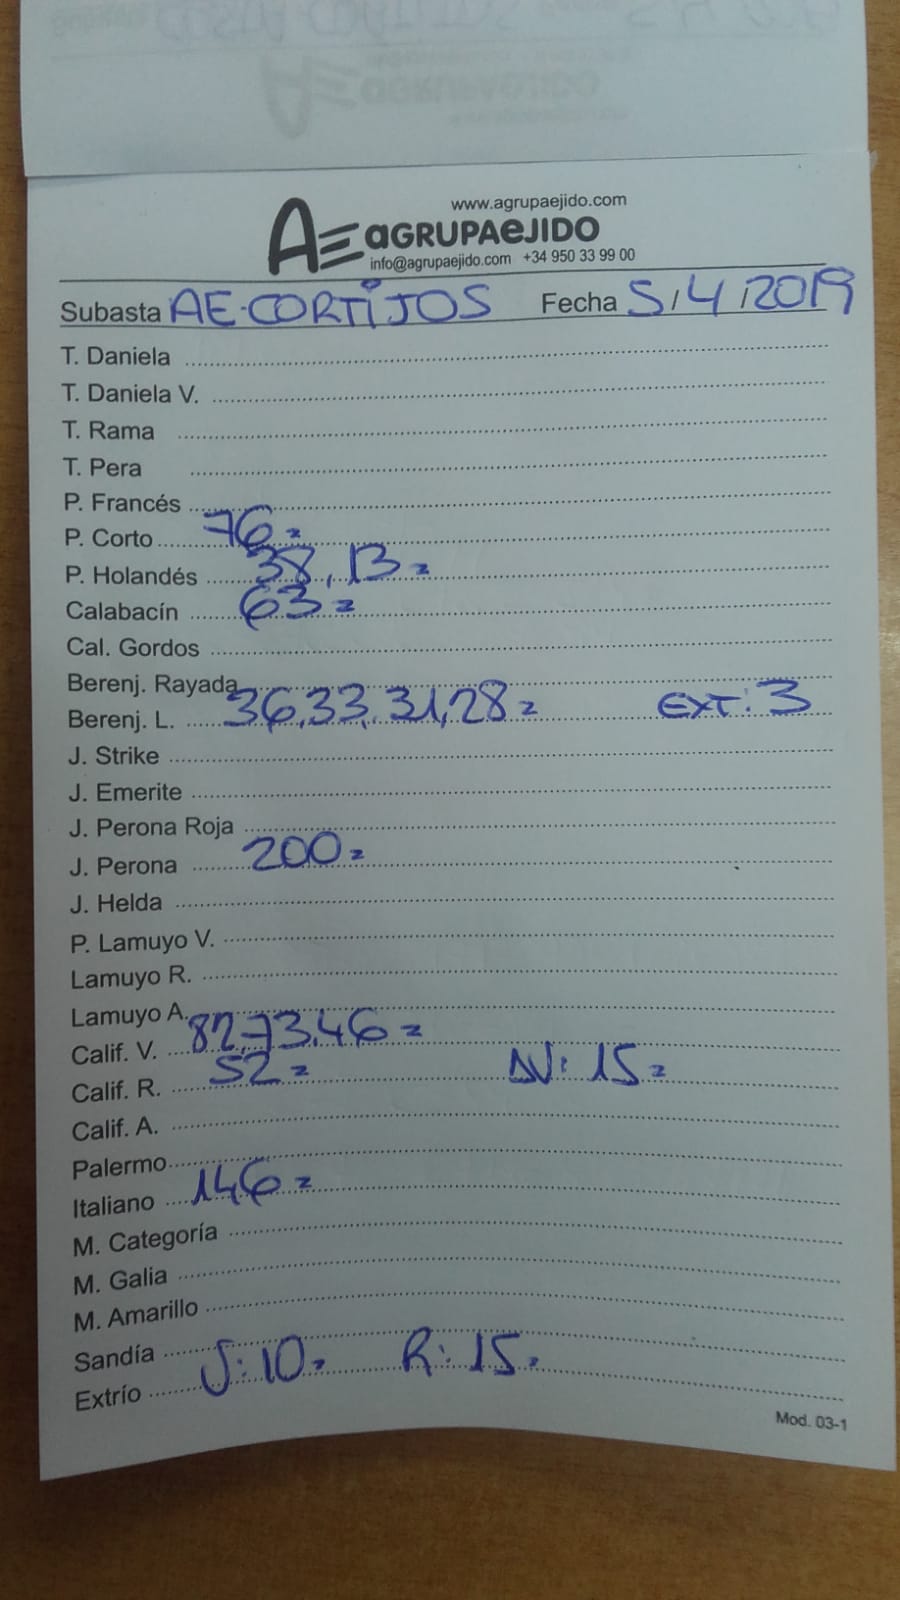 www.agrupaejido.com
AE aGRUPAeJIDO
info@agrupaejido.com +34 950 33 99 00
Subasta AE-CORTIJOS Fecha 5/4/2019
T. Daniela
T. Daniela V.
T. Rama
T. Pera
P. Francés
P. Corto 76=
P. Holandés 38, 13=
Calabacín 63=
Cal. Gordos
Berenj. Rayada
Berenj. L. 36,33,31,28= EXT: 3
J. Strike
J. Emerite
J. Perona Roja
J. Perona 200=
J. Helda
P. Lamuyo V.
Lamuyo R.
Lamuyo A.
Calif. V. 82,73,46=
Calif. R. 52= AV: 15=
Calif. A.
Palermo
Italiano 146=
M. Categoría
M. Galia
M. Amarillo
Sandía
Extrío V: 10= R: 15=
Mod. 03-1